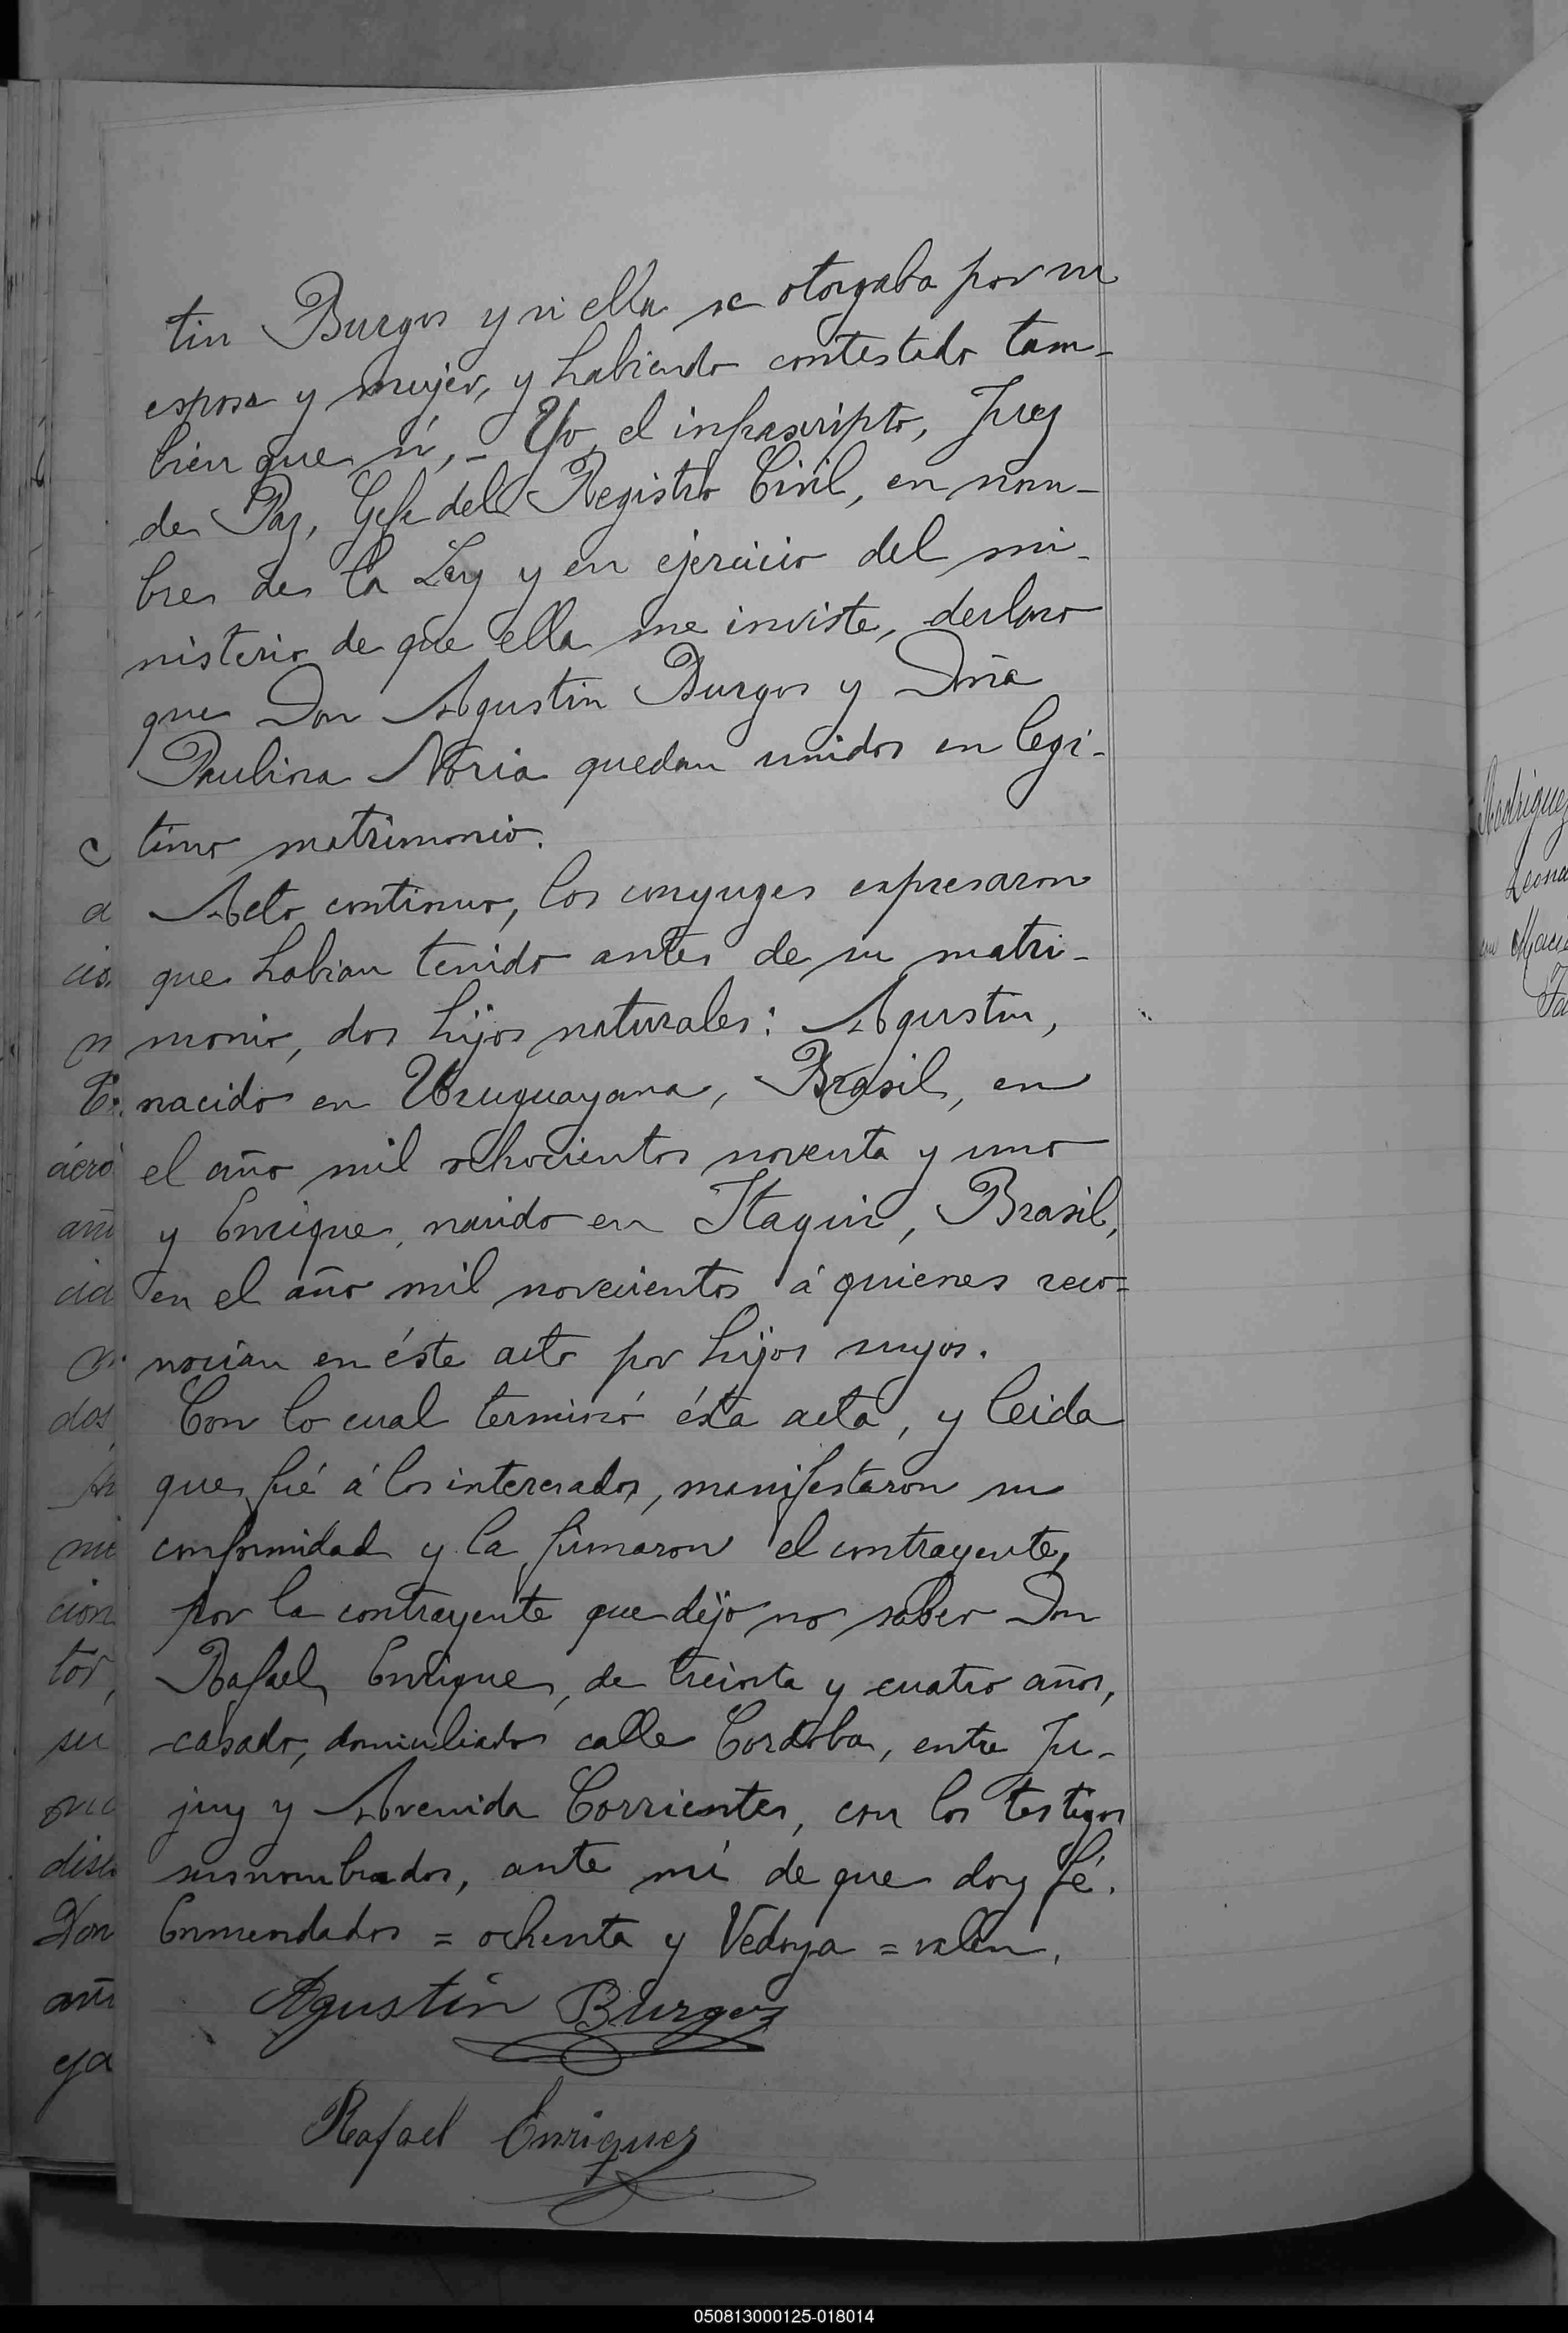 tin Burgos y si ella se otorgaba por su
esposa y mujer, y habiendo contestado tam-
bien que sí, - Yo, el infrascripto, Juez
de Paz, Gefe del Registro Civil, en nom-
bre de la Ley y en ejercicio del mi-
nisterio de que ella me inviste, declaro
que Don Agustin Burgos y Doña
Paulina Noria quedan unidos en legí-
timo matrimonio.
Acto continuo, los conyuges expresaron
que habian tenido antes de su matri-
monio, dos hijos naturales: Agustin,
nacido en Uruguayana, Brasil, en
el año mil ochocientos noventa y uno
y Enrique, nacido en Itaquí, Brasil,
en el año mil novecientos á quienes reco-
nocian en éste acto por hijos suyos.
Con lo cual terminó ésta acta, y leida
que fué á los interesados, manifestaron su
conformidad y la firmaron el contrayente,
por la contrayente que dijo no saber Don
Rafael Enrique, de treinta y cuatro años,
casado, domiciliado calle Cordoba, entre Ju-
juy y Avenida Corrientes, con los testigos
susnombrados, ante mí de que doy fé.
Enmendados = ochenta y Vedoya = valen.
Agustin Burgos
Rafael Enriquez
c
a
cio.
n
áero
añ
cia
dos,
mi
cion
tor,
su
Don
añ
ya
050813000125-018014